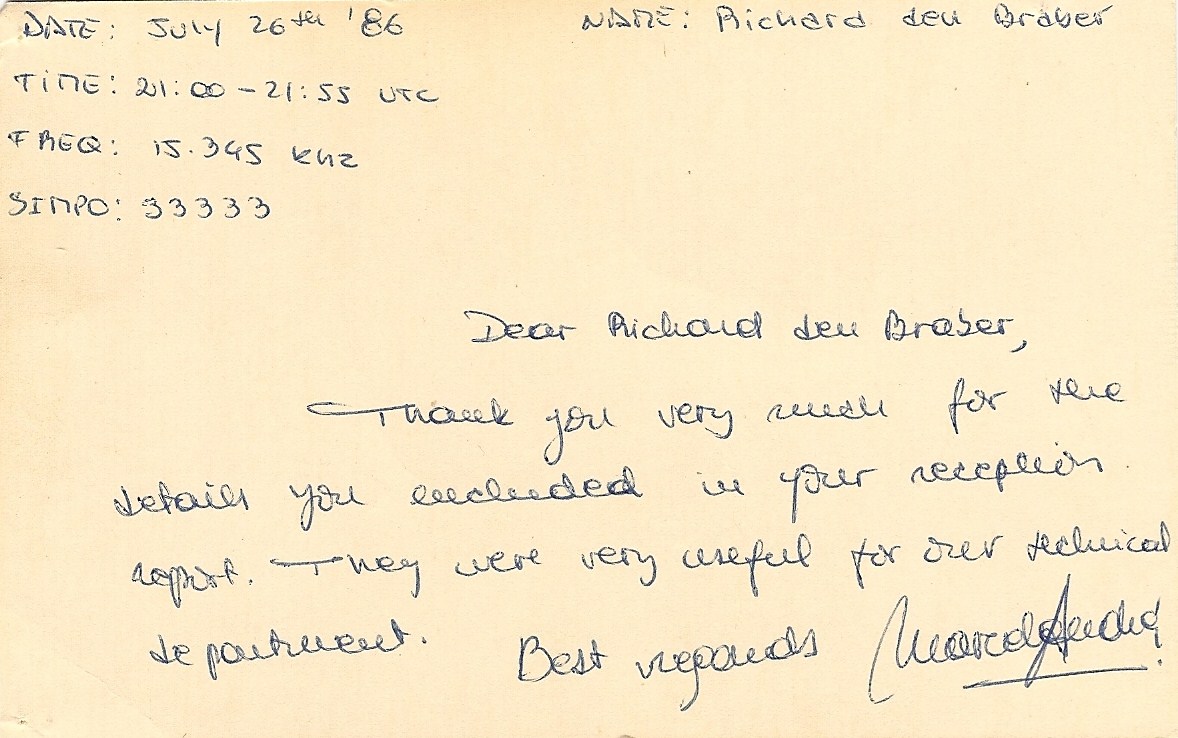 DATE: JULY 26th '86 NAME: Richard den Braber
TIME: 21:00 - 21:55 UTC
FREQ: 15.345 KHZ
SINPO: 33333
Dear Richard den Braber,
Thank you very much for the
details you encluded in your reception
report. They were very useful for our technical
department. Best regards